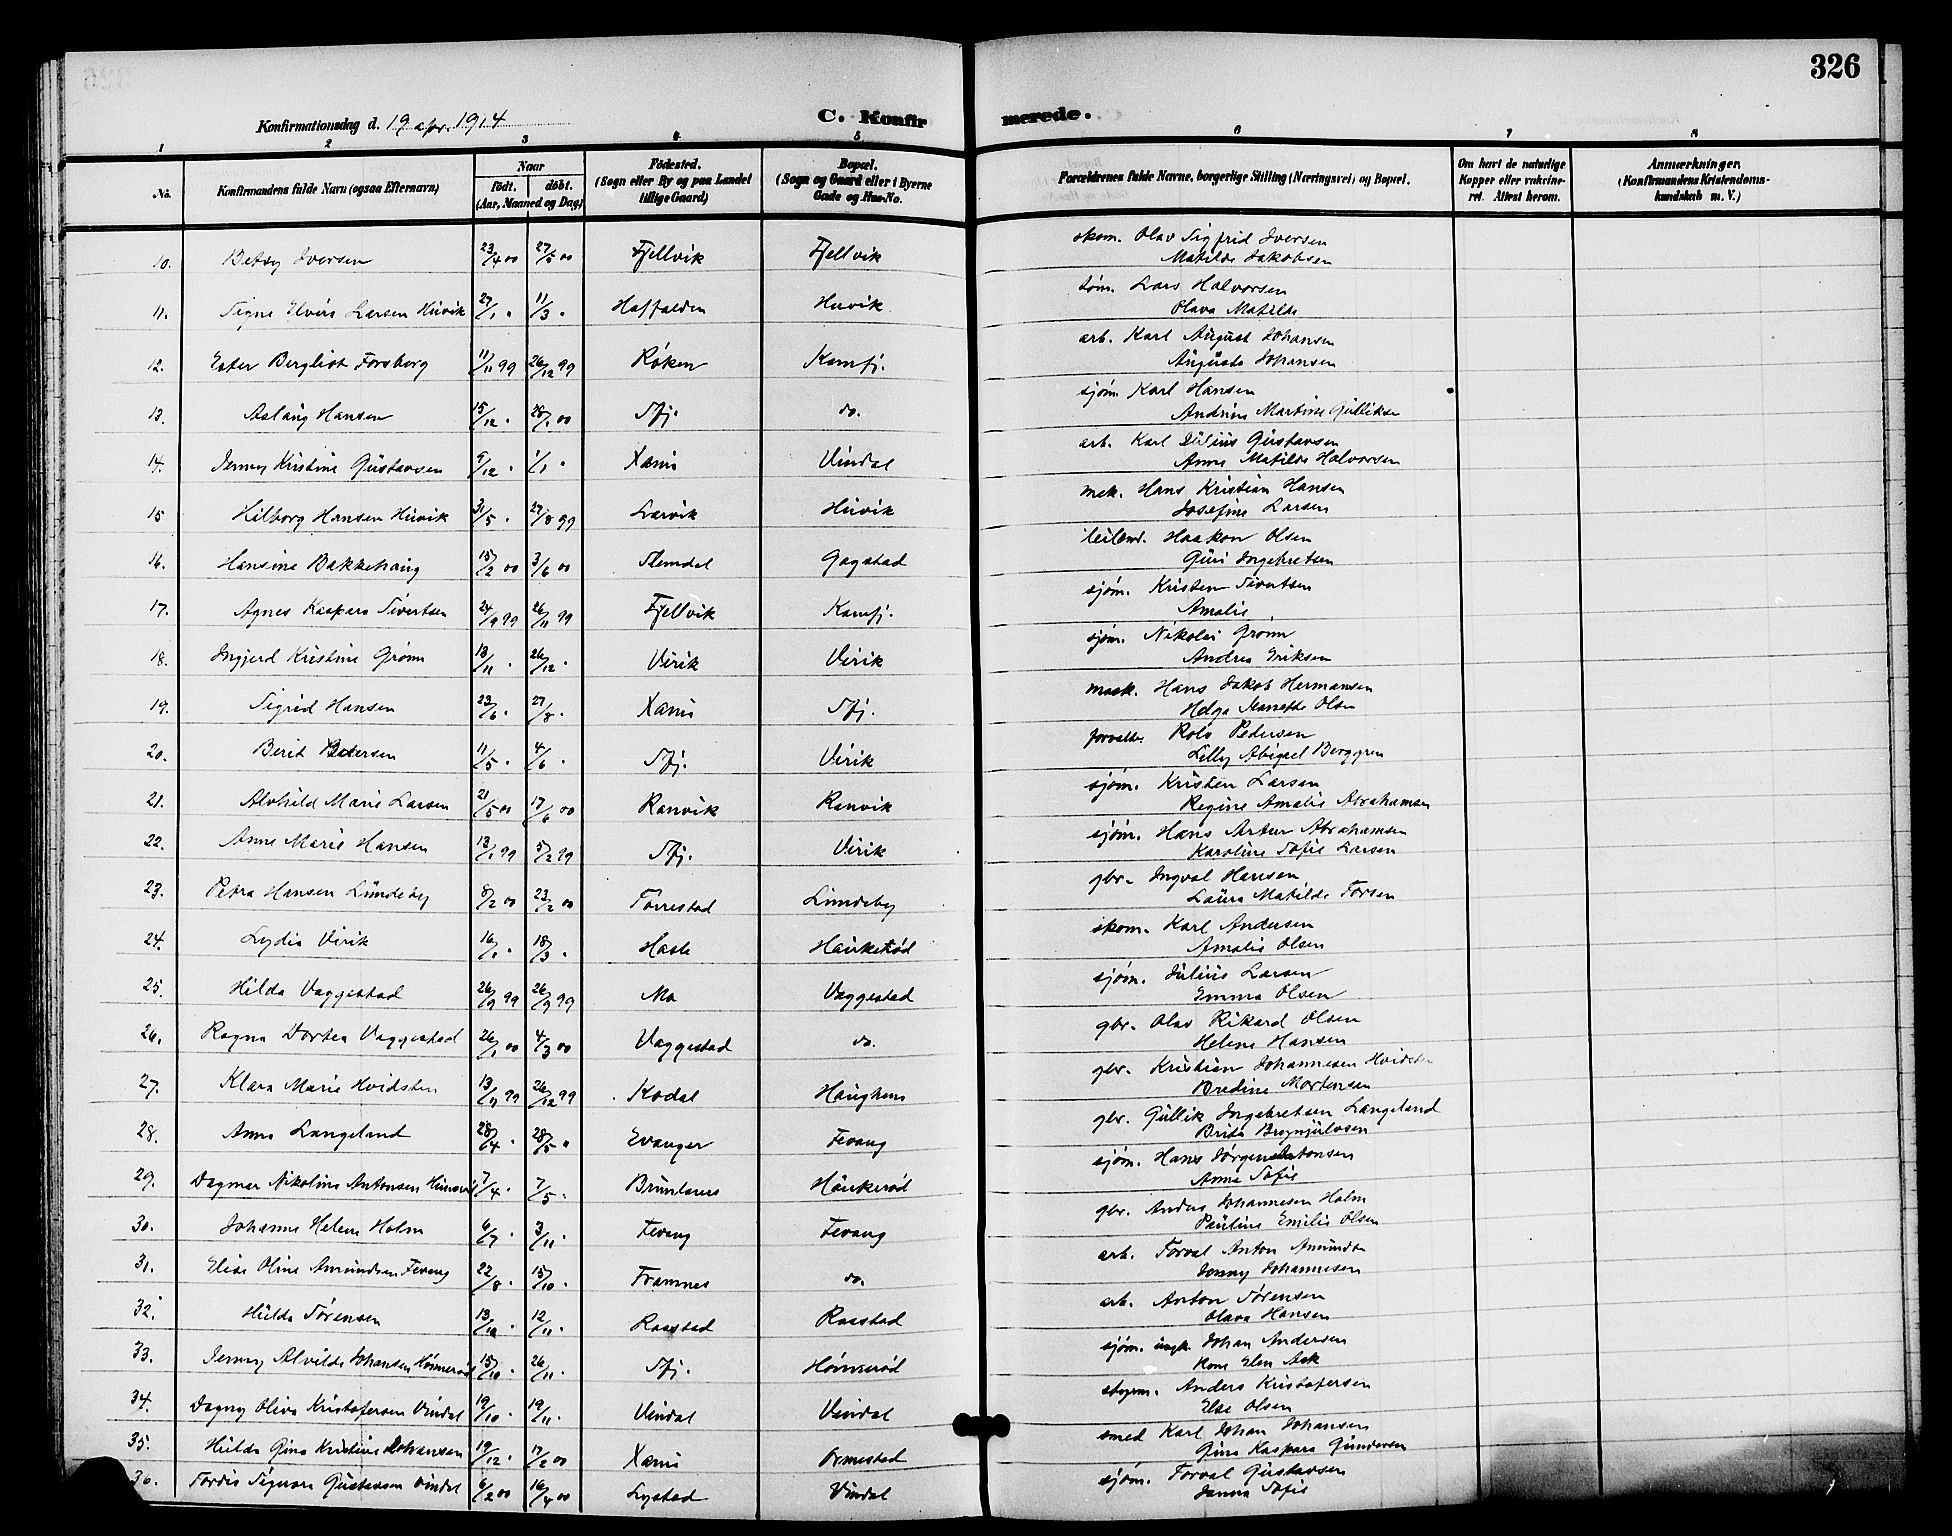 326
Konfirmationsdag d. 19 apr. 1914
C. Konfirmerede.
1 2 3 4 5 6 7 8
No. Konfirmandens fulde Navn (ogsaa Efternavn) Naar født. døbt. (Aar, Maaned og Dag) Fødested. (Sogn eller By og paa Landet tillige Gaard) Bopæl. (Sogn og Gaard eller i Byerne Gade og Hus-No. Forældrenes fulde Navne, borgerlige Stilling (Næringsvei) og Bopæl. Om havt de naturlige Kopper eller vakcineret. Attest herom. Anmærkninger (Konfirmandens Kristendomskundskab m. V.)
10. Betsy Iversen 23/4 00 27/5 00 Fjellvik Fjellvik skom. Olav Sigfrid Iversen
Matilde Jakobsen
11. Signe Elvira Larsen Huvik 27/1 " 11/3 " Haffalden Huvik tøm. Lars Halvorsen
Olava Matilde
12. Ester Bergliot Forsberg 11/11 99 26/12 99 Røken Kamfj. arb. Karl August Johansen
Augusta Johansen
13. Aslaug Hansen 15/12 " 28/1 00 Sfj. do. sjøm. Karl Hansen
Andrine Martine Gulliksen
14. Jenny Kristine Gustavsen 9/12 " 1/1 " Xania Vindal arb. Karl Julius Gustavsen
Anne Matilde Halvorsen
15 Hilborg Hansen Huvik 31/5 " 27/8 99 Larvik Huvik mek. Hans Kristian Hansen
Josefine Larsen
16. Hansine Bakkehaug 15/2 00 3/6 00 Slemdal Gogstad leilend. Haakon Olsen
Guri Ingebretsen
17. Agnes Kaspara Sivertsen 24/9 99 26/11 99 Fjellvik Kamfj. sjøm. Kristen Sivertsen
Amalie
18. Ingjerd Kristine Grønn 13/11 " 26/12 " Virik Virik sjøm. Nikolai Grønn
Andrea Eriksen
19. Sigrid Hansen 23/6 " 27/8 " Xania Sfj. mask. Hans Jakob Hermansen
Helga Nanette Olsen
20. Berit Pedersen 11/5 " 4/6 " Sfj. Virik forvalter. Rolv Pedersen
Lilly Abigael Berggren
21. Alvhild Marie Larsen 21/5 00 17/6 00 Ranvik Ranvik sjøm. Kristen Larsen
Regine Amalie Abrahamsen
22. Anne Marie Hansen 13/1 99 5/2 99 Sfj. Virik sjøm. Hans Artur Abrahamsen
Karoline Sofie Larsen
23. Petra Hansen Lundeby 8/2 00 23/2 00 Torrestad Lundeby gbr. Ingval Hansen
Laura Matilde Torsen
24. Lydia Virik 16/1 " 18/3 " Hasle Haukerød skom. Karl Andersen
Amalie Olsen
25. Hilda Vaggestad 26/9 99 26/9 99 Mo Vaggestad sjøm. Julius Larsen
Emma Olsen
26. Ragna Dortea Vaggestad 26/1 00 4/3 00 Vaggestad do. gbr. Olav Rikard Olsen
Helene Hansen
27. Klara Marie Hvidsten 13/11 99 26/12 99 Kodal Haughem gbr. Kristian Johannesen Hvidsten
Bredine Mortensen
28. Anna Langeland 28/4 " 28/5 " Evanger Fevang gbr. Gullik Ingebretsen Langeland
Brita Brynjulvsen
29. Dagmar Nikoline Antonsen 7/4 " 7/5 " Brunlanes Haukerød sjøm. Hans Jørgen Antonsen
Anna Sofie
30. Johanne Helene Holm 6/7 " 3/11 " Fevang Fevang gbr. Anders Johannesen Holm
Pauline Emilie Olsen
31. Elise Oline Amundsen Fevang 22/8 " 15/10 " Framnes do. arb. Torval Anton Amundsen
Jonny Johannesen
32. Hulda Sørensen 13/10 " 12/11 " Raastad Raastad arb. Anton Sørensen
Olava Hansen
33. Jenny Alvilde Johansen Hønnerød 15/10 " 26/11 " Sfj. Hønnerød sjøm. ungk. Johan Andersen
Hans Elen Ask
34. Dagny Oliva Kristofersen Vindal 19/10 " 19/11 " Vindal Vindal styrm. Anders Kristofersen
Else Olsen
35. Hulda Gina Kristine Johansen 19/12 " 17/2 00 Xania Ormestad smed Karl Johan Johansen
Gina Kaspara Gundersen
36. Tordis Signora Gustavsen Vindal 6/2 00 16/4 00 Lystad Vindal sjøm. Torval Gustavsen
Janna Sofie